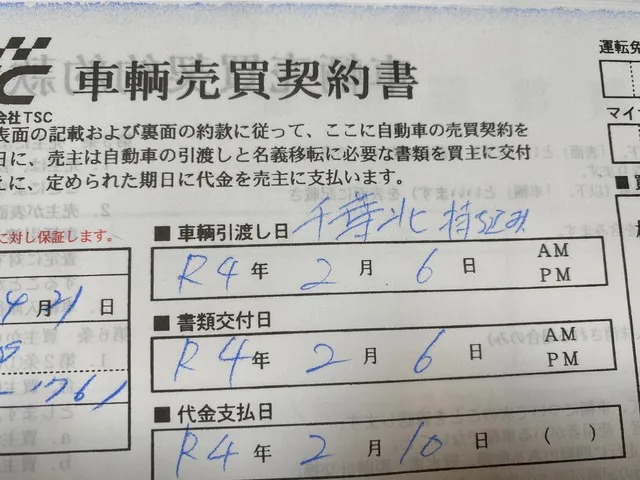 車輌売買契約書
運転免
会社TSC
マイナ
表面の記載および裏面の約款に従って、ここに自動車の売買契約を
日に、売主は自動車の引渡しと名義移転に必要な書類を買主に交付
えに、定められた期日に代金を売主に支払います。
に対し保証します。
■車輌引渡し日 千葉北 持込み
R4年 2月 6日 AM PM
月21日
■書類交付日
R4年 2月 6日 AM PM
1761
■代金支払日
R4年 2月 10日 ( )
■買